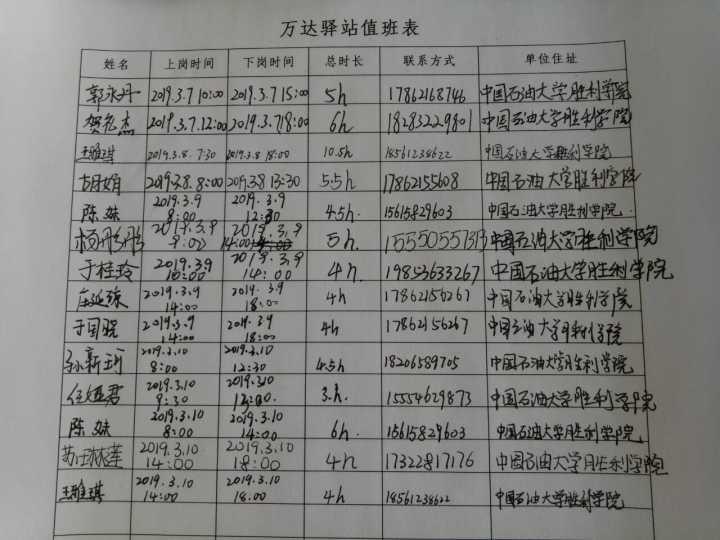 万达驿站值班表
姓名 上岗时间 下岗时间 总时长 联系方式 单位住址
郭永丹 2019.3.7 10:00 2019.3.7 15:00 5h 17862168746 中国石油大学胜利学院
贺 杰 2019.3.7.12:00 2019.3.7 18:00 6h 18283229801 中国石油大学胜利学院
王雅琪 2019.3.8. 7:30 2019.3.8 18:00 10.5h 18561238622 中国石油大学胜利学院
胡娟 2019.3.8. 8:00 2019.3.8 13:30 5.5h 17862155608 中国石油大学胜利学院
陈姝 2019.3.9 8:00 2019.3.9 12:30 4.5h. 15615829603 中国石油大学胜利学院.
杨彤彤 2019.3.9 9:00 2019.3.9 14:00 5h. 15550557313 中国石油大学胜利学院
于桂玲 2019.3.9 10:00 2019.3.9 14:00 4h. 19853633267 中国石油大学胜利学院
2019.3.9 14:00 2019.3.9 18:00 4h 17862156267 中国石油大学胜利学院
于国 2019.3.9 14:00 2019.3.9 18:00 4h 17862156267 中国石油大学胜利学院
孙新 2019.3.10 8:00 2019.3.10 12:30 4.5h 18206589705 中国石油大学胜利学院
任 君 2019.3.10 9:30 2019.3.10 3.h. 15554629873 中国石油大学胜利学院
陈姝 2019.3.10 8:00 2019.3.10 14:00 6h. 15615829603 中国石油大学胜利学院.
苏 林莲 2019.3.10 14:00 2019.3.10 18:00 4h 17322817176 中国石油大学胜利学院
王雅琪 2019.3.10 14:00 2019.3.10 18.00 4h 18561238622 中国石油大学胜利学院